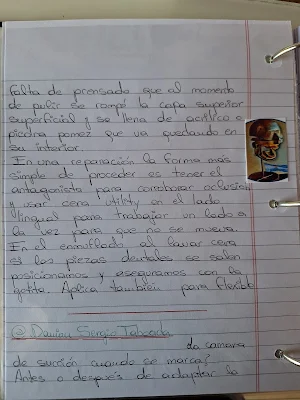 falta de prensado que al momento
de pulir se rompí la capa superior
superficial y se llena de acrílico e
piedra pomez que va quedando en
su interior.
En una reparación la forma mas
simple de proceder es tener el
antagonista para corroborar oclusión
y usar cera utility en el lado
lingual para trabajar un lado a
la vez para que no se mueva.
En el enmuflado al lavar cera
si las piezas dentales se salen
posicionamos y aseguramos con la
gotita. Aplica también para flexible
@ Sergio Taboada
la camara
de succión cuando se marca?
Antes o después de adaptar la